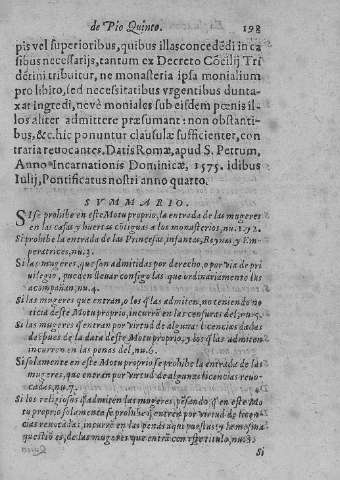 de Pio Quinto. 198
pis vel superioribus, quibus illas concedẽdi in ca
sibus necessarijs, tantum ex Decreto Cõcilij Tri
dẽtini tribuitur, ne monasteria ipsa monialium
pro libito, sed necessitatibus vrgentibus duntа
xat ingredi, nevè moniales sub eisdem pœnis il-
los aliter admittere præsumant: non obstanti-
bus, &c. hic ponuntur clausulæ sufficienter, con
traria reuocantes. Datis Romæ, apud S. Petrum,
Anno Incarnationis Dominicæ, 1575. idibus
Iulij, Pontificatus nostri anno quarto.
SVMMARIO.
SI se prohibe en este Motu proprio, la entrada de las mugeres
en las casas y huertas contiguas a los monasterios, nu. 1. y 2.
Si prohibe la entrada de las Princesas, infantas, Reynas y Em-
peratrices, nu. 3.
Si las mugeres, que son admitidas por derecho, o por via de pri
uilegio, pueden lleuar consigo las que ordinariamente las
acompañan, nu. 4.
Si las mugeres que entran, o los q̃ las admiten, no teniendo no
ticia deste Motu proprio, incurrẽ en las censuras del, nu. 5.
Si las mugeres q̃ entran por virtud de algunas licencias dadas
despues de la data deste Motu proprio, y los q̃ las admiten
incurren en las penas del, nu. 6.
Si solamente en este Motu proprio se prohibe la entrada de las
mugeres, que entran por virtud de algunas licencias reuo-
cadas, nu. 7.
Si los religiosos q̃ admiten las mugeres, pẽsando q̃ en este Mo
tu proprio solamente se prohibe q̃ entren por virtud de licen-
cias reuocadas, incurren en las penas aqui puestas y la mesma
questiõ es, de las mugeres que entrã con respetitulo, nu. 8.
Si